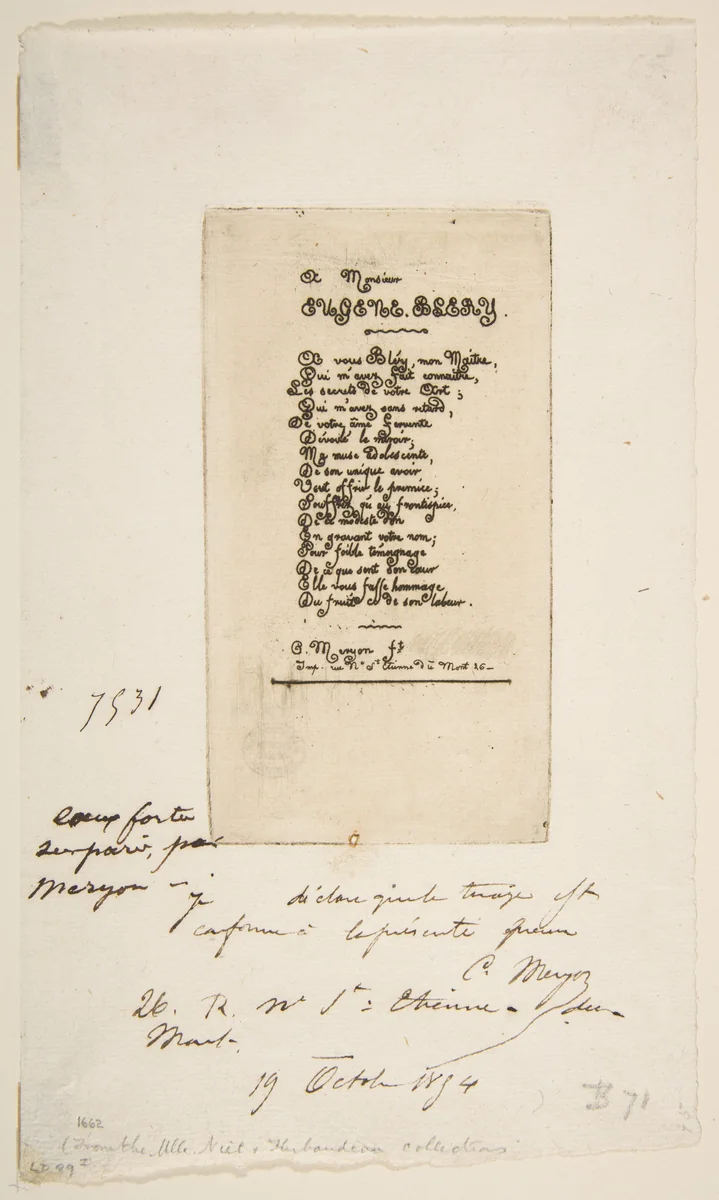 A Monsieur
EUGENE. BLERY.
A vous Bléry, mon Maitre,
Qui m'avez fait connaitre,
Les secrets de votre Art;
Qui m'avez sans retard,
De votre âme fervente
Dévoilé le miroir;
Ma muse adolescente,
De son unique avoir
Veut offrir le premice;
Souffrez qu'au frontispice,
De ce modeste don
En gravant votre nom;
Pour foible témoignage
De ce que sent son cœur
Elle vous fasse hommage
Du fruit de son labeur.
C. Meryon ft
Imp. rue Ne St Etienne du Mont 26
7531
eaux fortes
sur paris, par
Meryon
je déclare que le tirage est
conforme à la présente épreuve
C. Meryon
26. R. Ne St: Etienne-du-
Mont.
19 Octobre 1854
B 71
1662
(From the Mlle Niel & Thibaudeau collections
LD 89